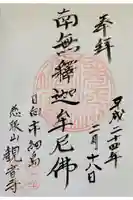 奉拝
平成二十四年
二月十八日
南無釋迦牟尼佛
日向市細島
観音寺